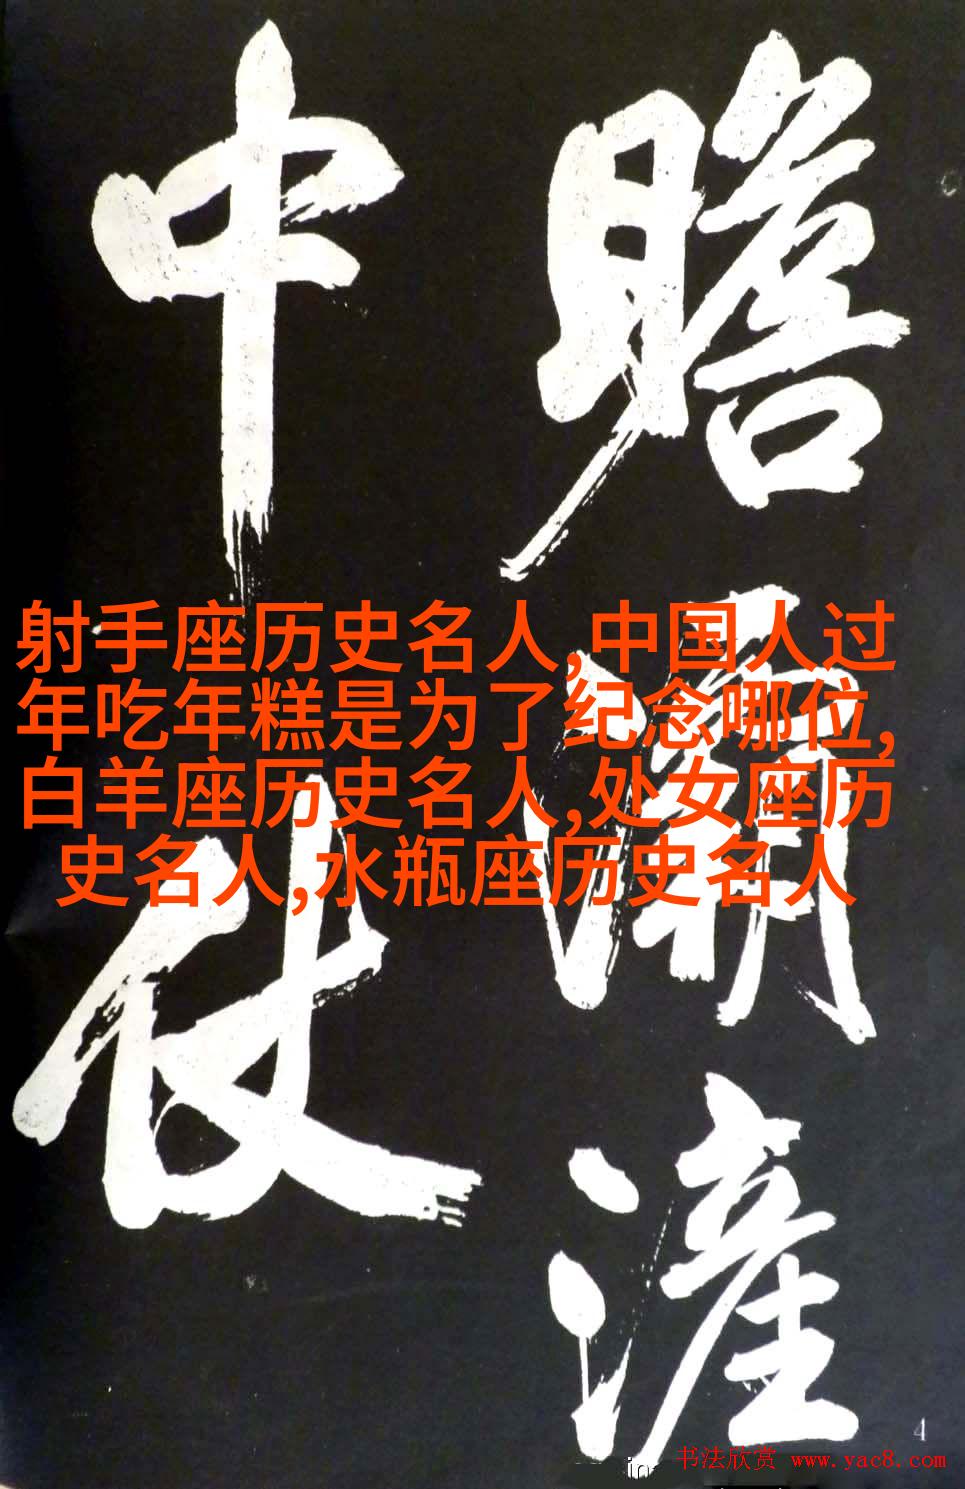 瞻灞滻
中仗
射手座历史名人,中国人过
年吃年糕是为了纪念哪位,
白羊座历史名人,处女座历
史名人,水瓶座历史名人
4
书法欣赏 www.yac8.com